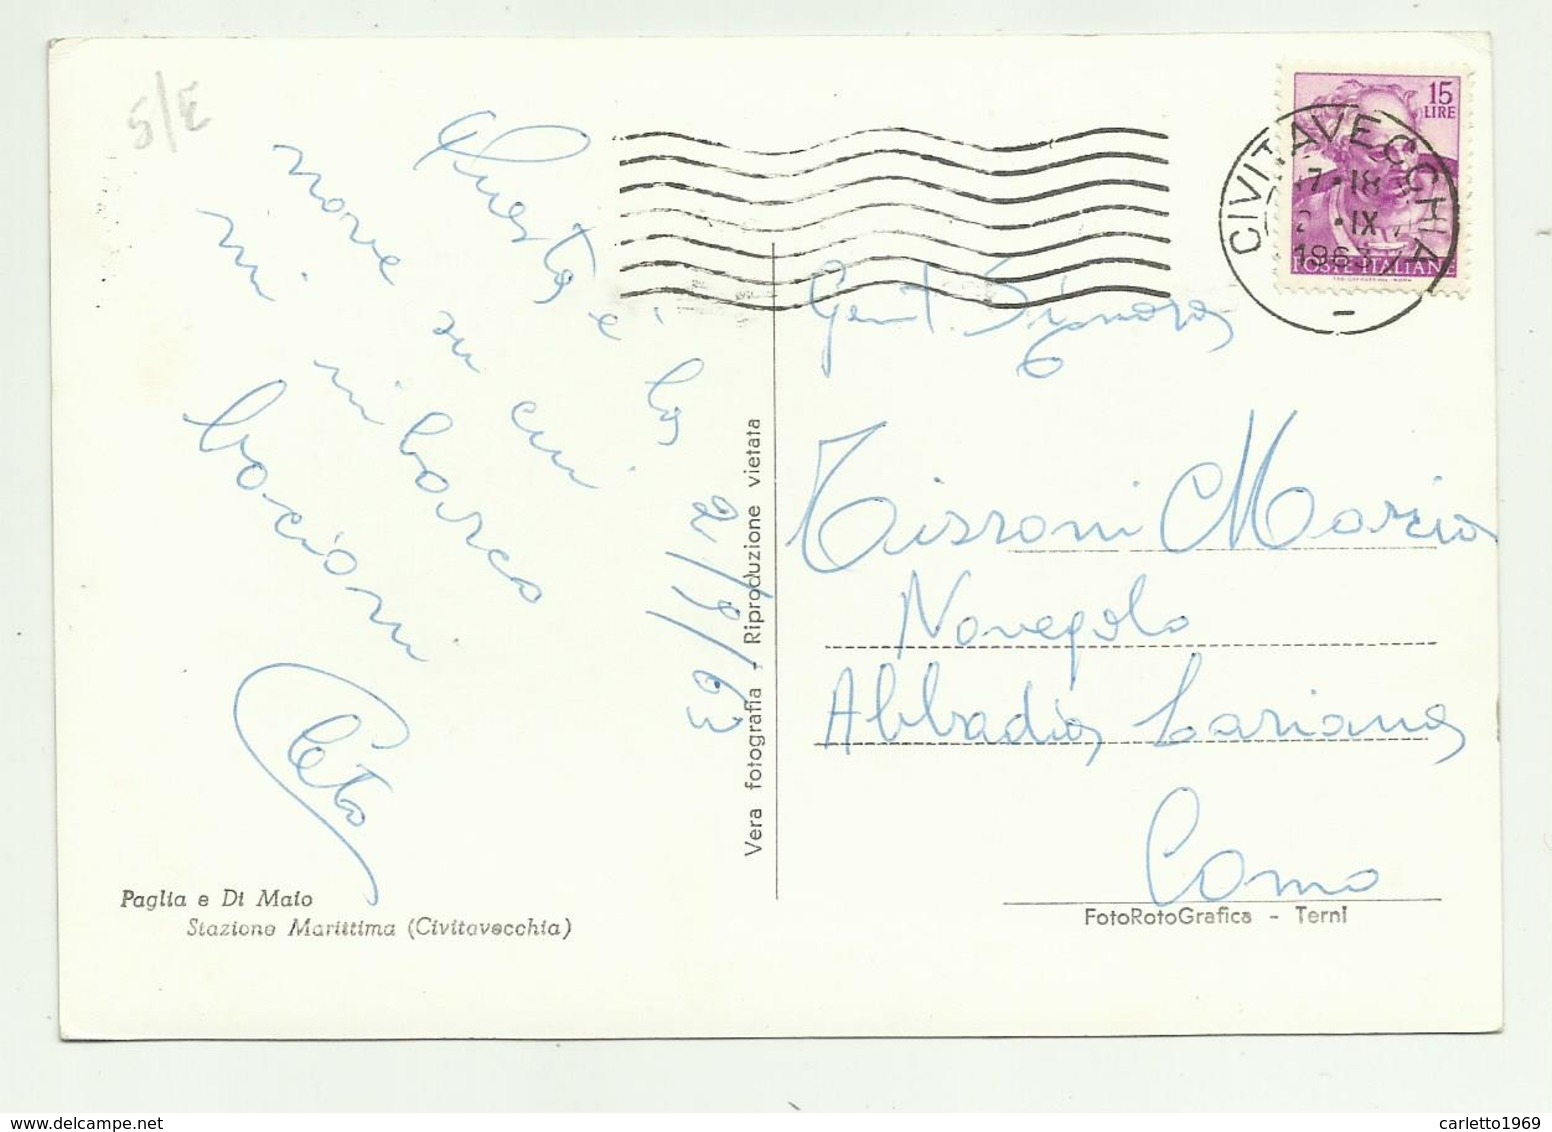 5/E
Questa è la
nave su cui
mi mi barco
bacioni
2/9/63
Paglia e Di Maio
Stazione Marittima (Civitavecchia)
Vera fotografia - Riproduzione vietata
15
LIRE
POSTE ITALIANE
CIVITAVECCHIA
17-18
2 · IX
1963
Gent. Signora
Tizzoni Marzia
Novegolo
Abbadia Lariana
Como
FotoRotoGrafica - Terni
carletto1969